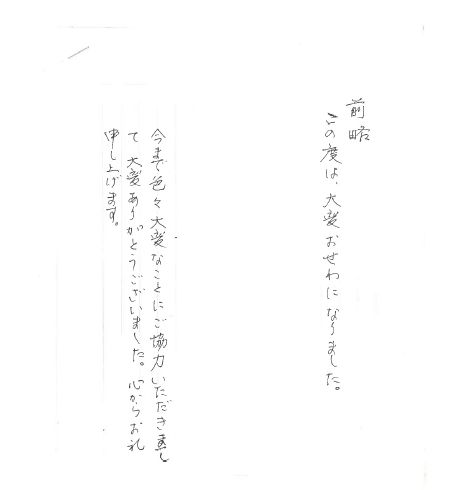 前略
この度は、大変おせわになりました。
今まで色々大変なことにご協力いただきまし
て大変ありがとうございました。心からお礼
申し上げます。